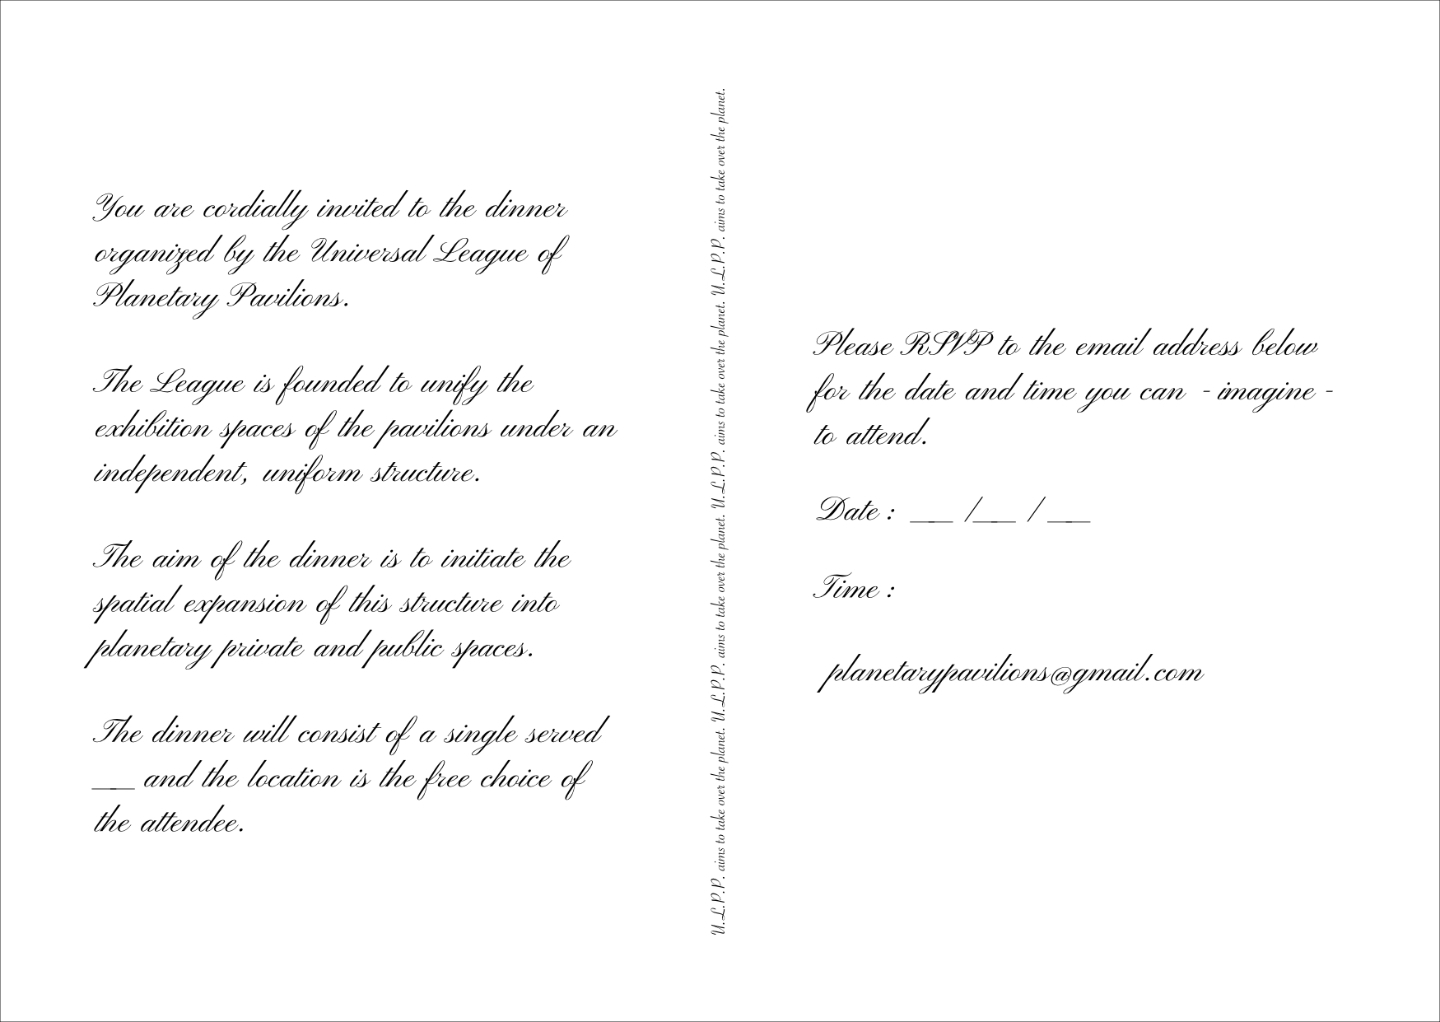 You are cordially invited to the dinner
organized by the Universal League of
Planetary Pavilions.
The League is founded to unify the
exhibition spaces of the pavilions under an
independent, uniform structure.
The aim of the dinner is to initiate the
spatial expansion of this structure into
planetary private and public spaces.
The dinner will consist of a single served
___ and the location is the free choice of
the attendee.
U.L.P.P. aims to take over the planet. U.L.P.P. aims to take over the planet. U.L.P.P. aims to take over the planet. U.L.P.P. aims to take over the planet.
Please RSVP to the email address below
for the date and time you can - imagine -
to attend.
Date : ___ /___ / ___
Time :
planetarypavilions@gmail.com